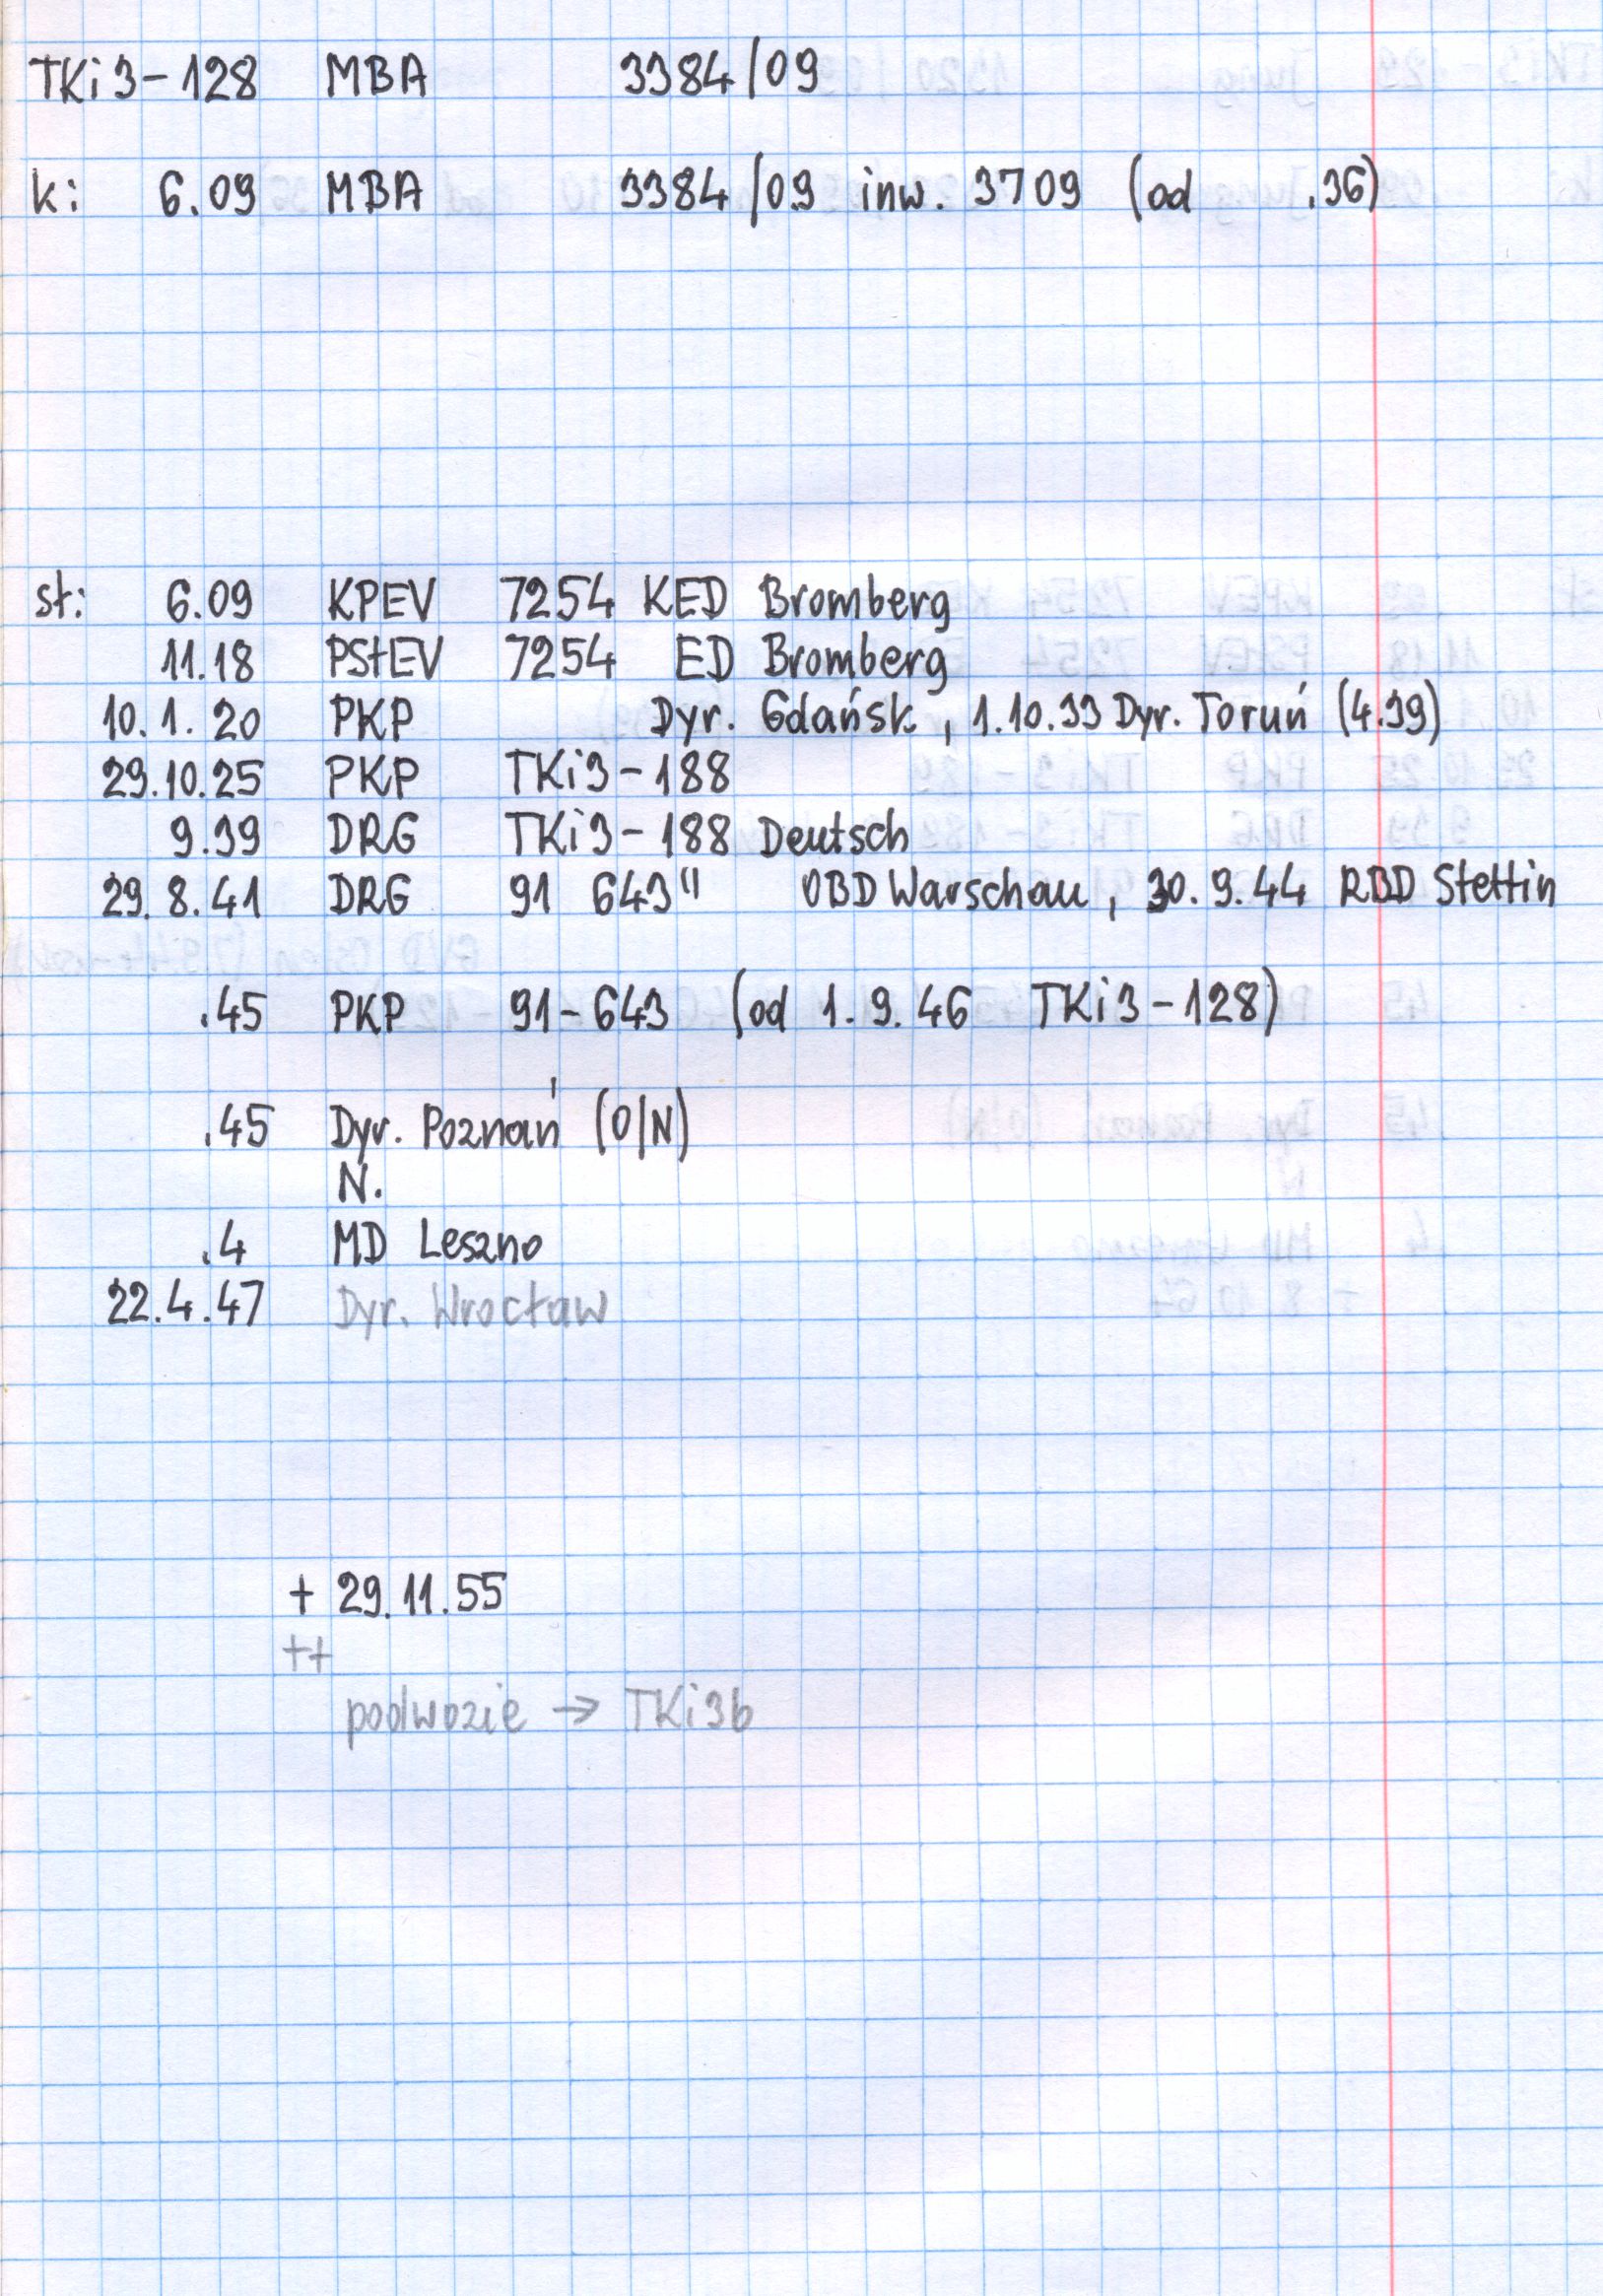 TKi3-128 MBA 3384/09
k: 6.09 MBA 3384/09 inw. 3709 (od .36)
st: 6.09 KPEV 7254 KED Bromberg
11.18 PStEV 7254 ED Bromberg
10.1.20 PKP Dyr. Gdańsk, 1.10.33 Dyr. Toruń (4.39)
29.10.25 PKP TKi3-188
9.39 DRG TKi3-188 Deutsch
29.8.41 DRG 91 643" OBD Warschau, 30.9.44 RBD Stettin
.45 PKP 91-643 (od 1.9.46 TKi3-128)
.45 Dyr. Poznań (O/N)
N.
.4 MD Leszno
22.4.47 Dyr. Wrocław
+ 29.11.55
++
podwozie → TKi3b